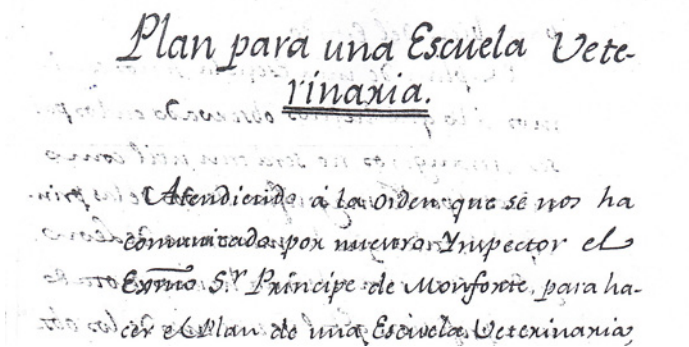 Plan para una Escuela Vete-
rinaria.
Atendiendo á la orden que se nos ha
comunicado por nuestro Ynspector el
Exmo S.r Principe de Monforte, para ha-
cer el Plan de una Escuela Veterinaria,